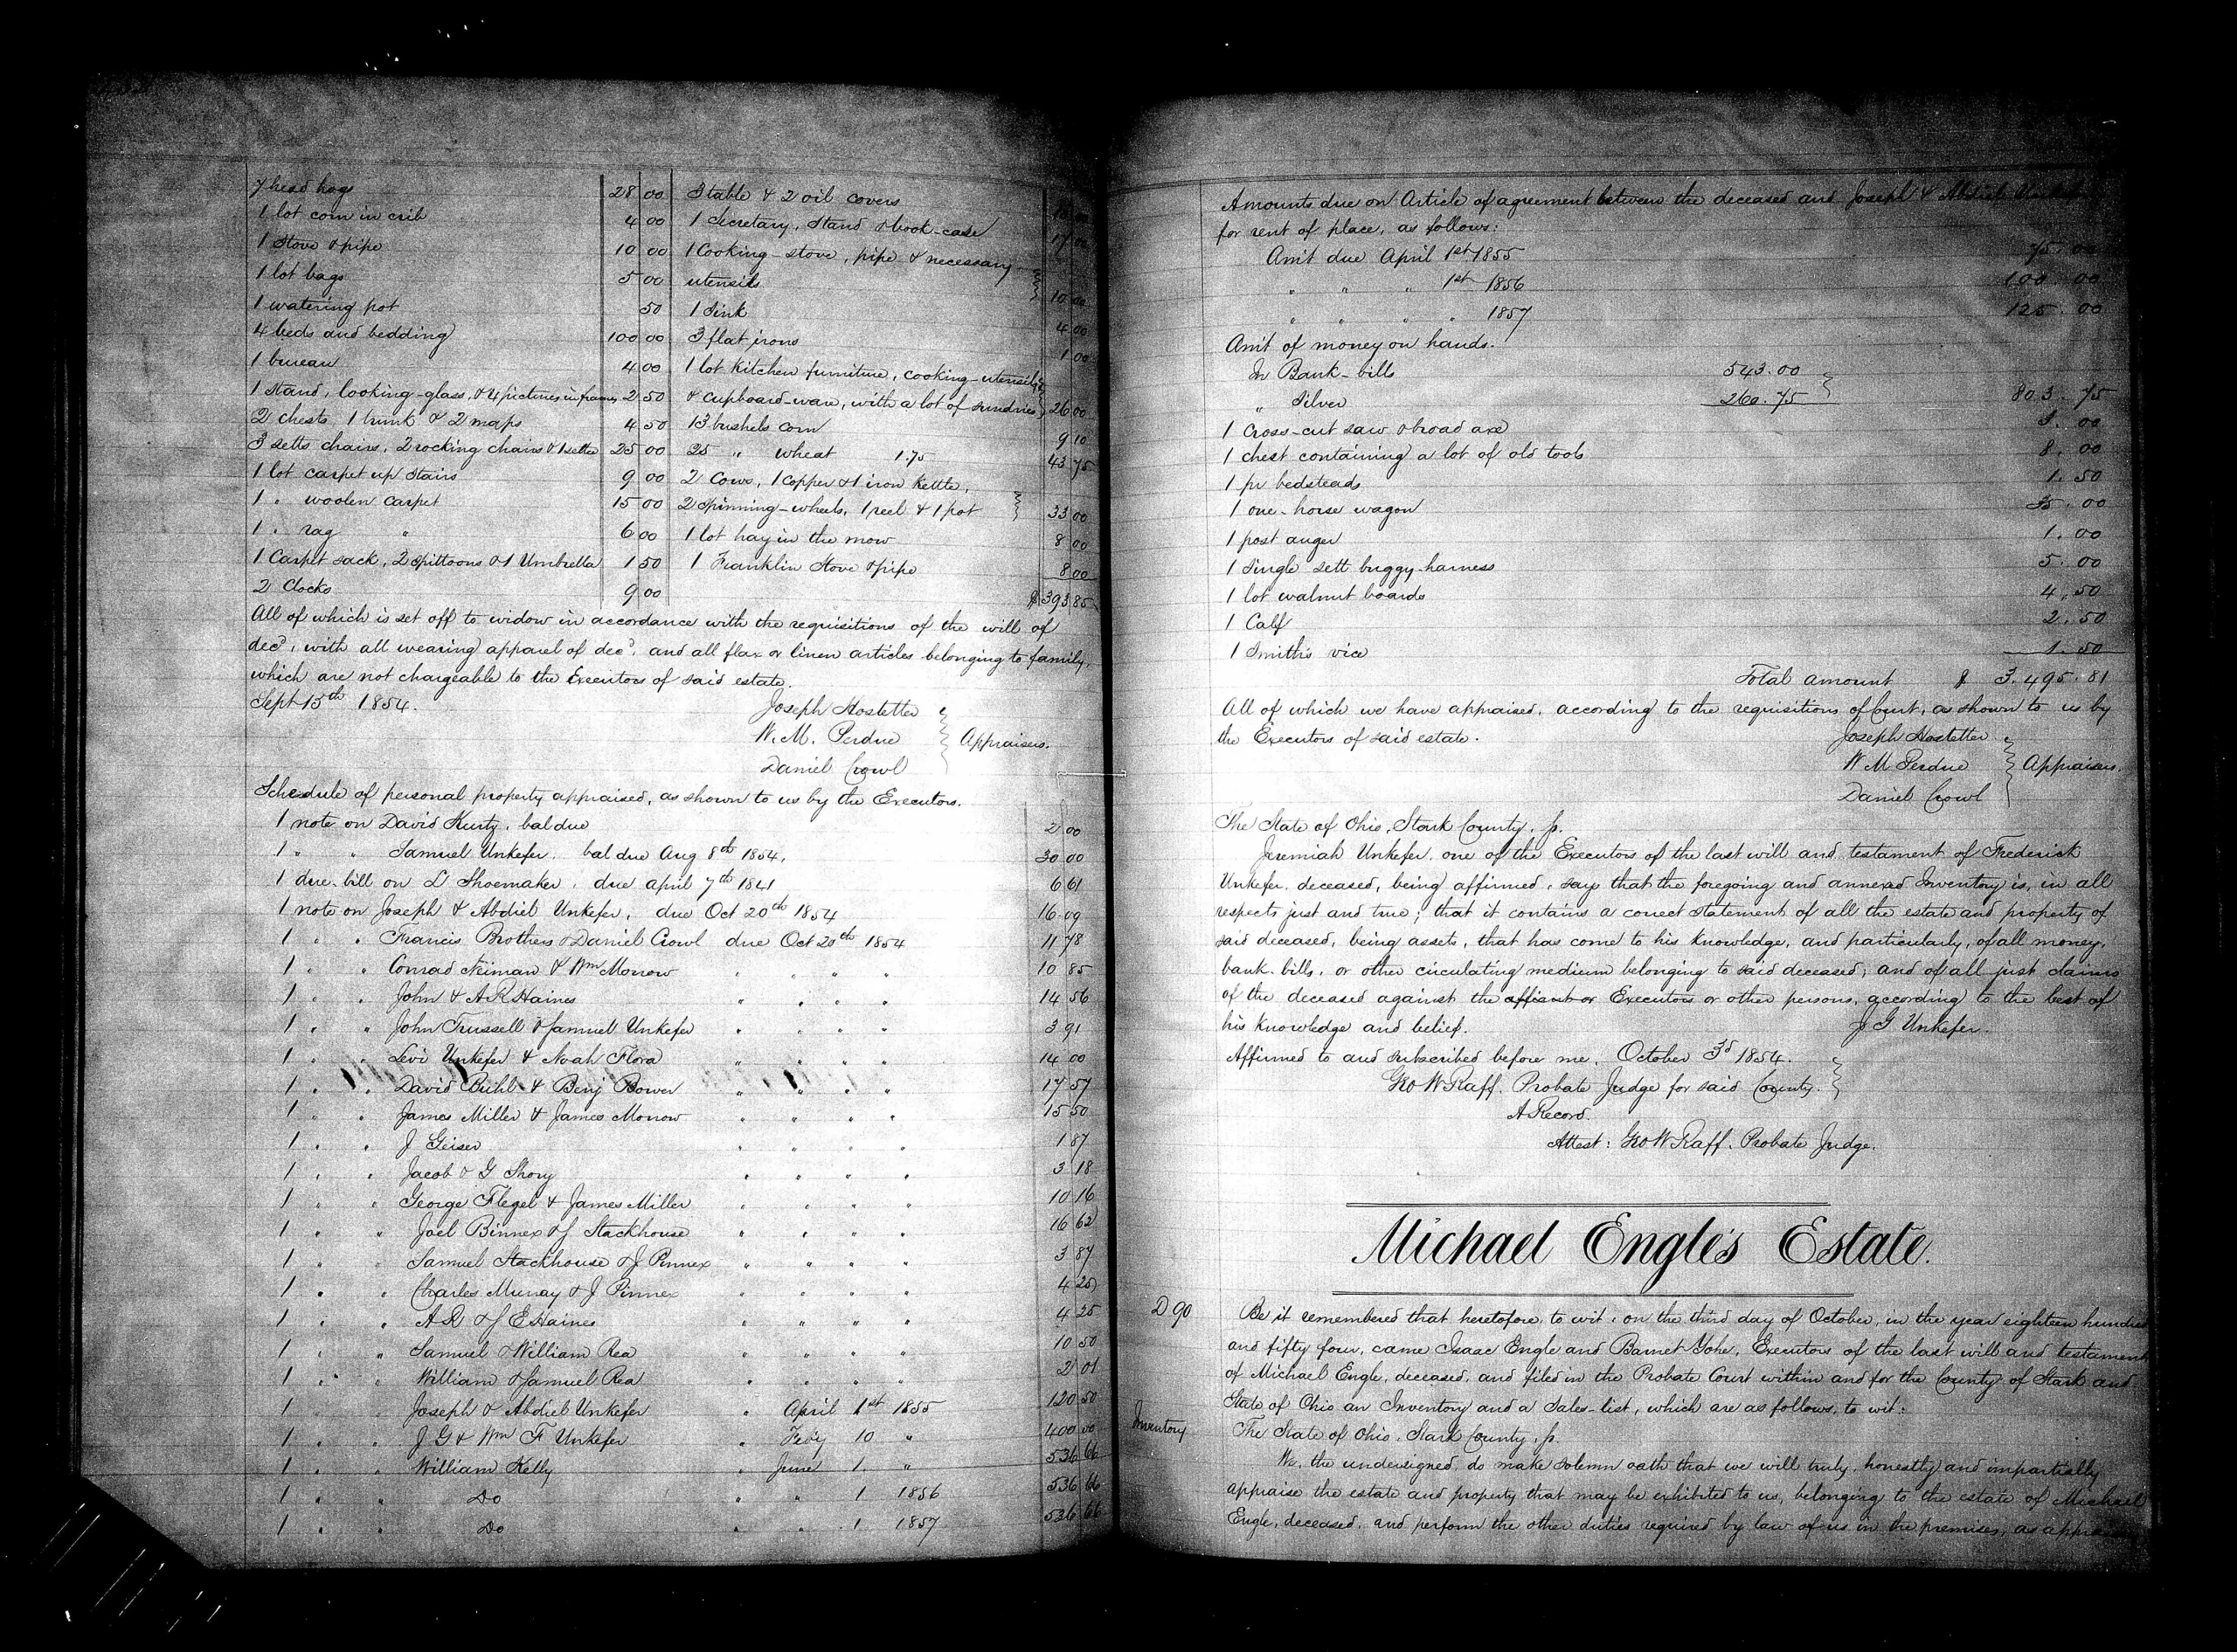 7 head hogs 28 00
1 lot corn in crib 4 00
1 Stove & pipe 10 00
1 lot bags 5 00
1 watering pot 50
4 beds and bedding 100 00
1 bureau 4 00
1 Stand, looking-glass, & 4 pictures in frames 2 50
2 chests, 1 trunk & 2 maps 4 50
3 setts chairs, 2 rocking chairs & 1 settee 25 00
1 lot carpet up stairs 9 00
1 " woolen carpet 15 00
1 " rag " 6 00
1 Carpet sack, 2 spittoons & 1 Umbrella 1 50
2 Clocks 9 00
3 table & 2 oil covers
1 Secretary, Stand & book-case 17 00
1 Cooking-stove, pipe & necessary
utensils 10 00
1 Sink 4 00
3 flat irons 1 00
1 lot kitchen furniture, cooking-utensils
& cupboard-ware, with a lot of sundries 26 00
13 bushels corn 9 10
25 " wheat 1.75 43 75
2 Cows, 1 Copper & 1 iron kettle,
2 Spinning-wheels, 1 reel & 1 pot 33 00
1 lot hay in the mow 8 00
1 Franklin Stove & pipe 8 00
$ 393 85
All of which is set off to widow in accordance with the requisitions of the will of
decd, with all wearing apparel of decd, and all flax or linen articles belonging to family,
which are not chargeable to the Executors of said estate.
Sept 15th 1854.
Joseph Hostetter
W. M. Perdue Appraisers.
Daniel Crowl
Schedule of personal property appraised, as shown to us by the Executors.
1 note on David Kurtz, bal due 2 00
1 " " Samuel Unkefer, bal due Aug 8th 1854, 30 00
1 due-bill on L Shoemaker, due april 7th 1841 6 61
1 note on Joseph & Abdiel Unkefer, due Oct 20th 1854 16 09
1 " " Francis Brothers & Daniel Crowl due Oct 20th 1854 11 78
1 " " Conrad Neiman & Wm Morrow " " " " 10 85
1 " " John & A R Haines " " " " 14 56
1 " " John Trussell & Samuel Unkefer " " " " 3 91
1 " " Levi Unkefer & Noah Flora " " " " 14 00
1 " " David Buhl & Benj Bower " " " " 17 57
1 " " James Miller & James Morrow " " " " 15 50
1 " " J Geiser " " " " 1 87
1 " " Jacob & G Shory " " " " 3 18
1 " " George Flegel & James Miller " " " " 10 16
1 " " Joel Binnex & J Stackhouse " " " " 16 62
1 " " Samuel Stackhouse & J Pinnex " " " " 3 87
1 " " Charles Murray & J Pinnex " " " " 4 25
1 " " A R & J E Haines " " " " 4 25
1 " " Samuel & William Rea " " " " 10 50
1 " " William & Samuel Rea " " " " 2 01
1 " " Joseph & Abdiel Unkefer " April 1st 1855 120 50
1 " " J G & Wm F Unkefer " Feby 10 " 400 00
1 " " William Kelly " June 1 " 536 66
1 " " Do " " 1 1856 536 66
1 " " Do " " 1 1857 536 66
Amounts due on Article of agreement between the deceased and Joseph & Abdiel
for rent of place, as follows:
Am't due April 1st 1855 75.00
" " " 1st 1856 100.00
" " " " 1857 125.00
Am't of money on hands.
In Bank-bills 543.00
" Silver 260.75 803.75
1 Cross-cut saw & broad axe 3.00
1 chest containing a lot of old tools 8.00
1 pr bedsteads 1.50
1 one-horse wagon 35.00
1 post auger 1.00
1 Single sett buggy-harness 5.00
1 lot walnut boards 4.50
1 Calf 2.50
1 Smith's vice 1.50
Total amount $ 3.495.81
All of which we have appraised, according to the requisitions of Court, as shown to us by
the Executors of said estate.
Joseph Hostetter
W M Perdue Appraisers.
Daniel Crowl
The State of Ohio, Stark County, ss.
Jeremiah Unkefer, one of the Executors of the last will and testament of Frederick
Unkefer, deceased, being affirmed, says that the foregoing and annexed Inventory is, in all
respects just and true; that it contains a correct statement of all the estate and property of
said deceased, being assets, that has come to his knowledge, and particularly, of all money,
bank-bills, or other circulating medium belonging to said deceased; and of all just claims
of the deceased against the affiant or Executors or other persons, according to the best of
his knowledge and belief. J G Unkefer.
Affirmed to and subscribed before me, October 3d 1854.
Geo W Raff. Probate Judge for said County.
A Record.
Attest: Geo W Raff. Probate Judge.
Michael Engle's Estate.
D 90 Be it remembered that heretofore, to wit, on the third day of October, in the year eighteen hundred
and fifty four, came Isaac Engle and Barnet Yohe, Executors of the last will and testament
of Michael Engle, deceased, and filed in the Probate Court within and for the County of Stark and
State of Ohio an Inventory and a Sales-list, which are as follows, to wit:
Inventory The State of Ohio, Stark County, ss.
We, the undersigned, do make solemn oath that we will truly, honestly and impartially
appraise the estate and property that may be exhibited to us, belonging to the estate of Michael
Engle, deceased, and perform the other duties required by law of us in the premises, as